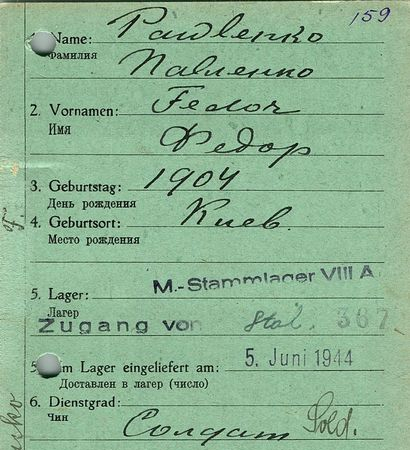 159
1. Name: Pawlenko
Фамилия
Павленко
2. Vornamen: Fedor
Имя
Федор
3. Geburtstag: 1904
День рождения
4. Geburtsort: Киев
Место рождения
M.-Stammlager VIII A
5. Lager:
Лагер
Zugang von Stal. 367
5. Im Lager eingeliefert am: 5. Juni 1944
Доставлен в лагер (число)
6. Dienstgrad:
Чин
Солдат Sold.